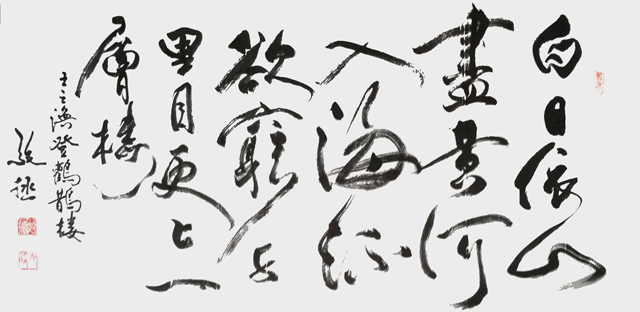 白日依山
盡黄河
入海流
欲窮千
里目更上一
層樓
王之渙登鸛鵲樓